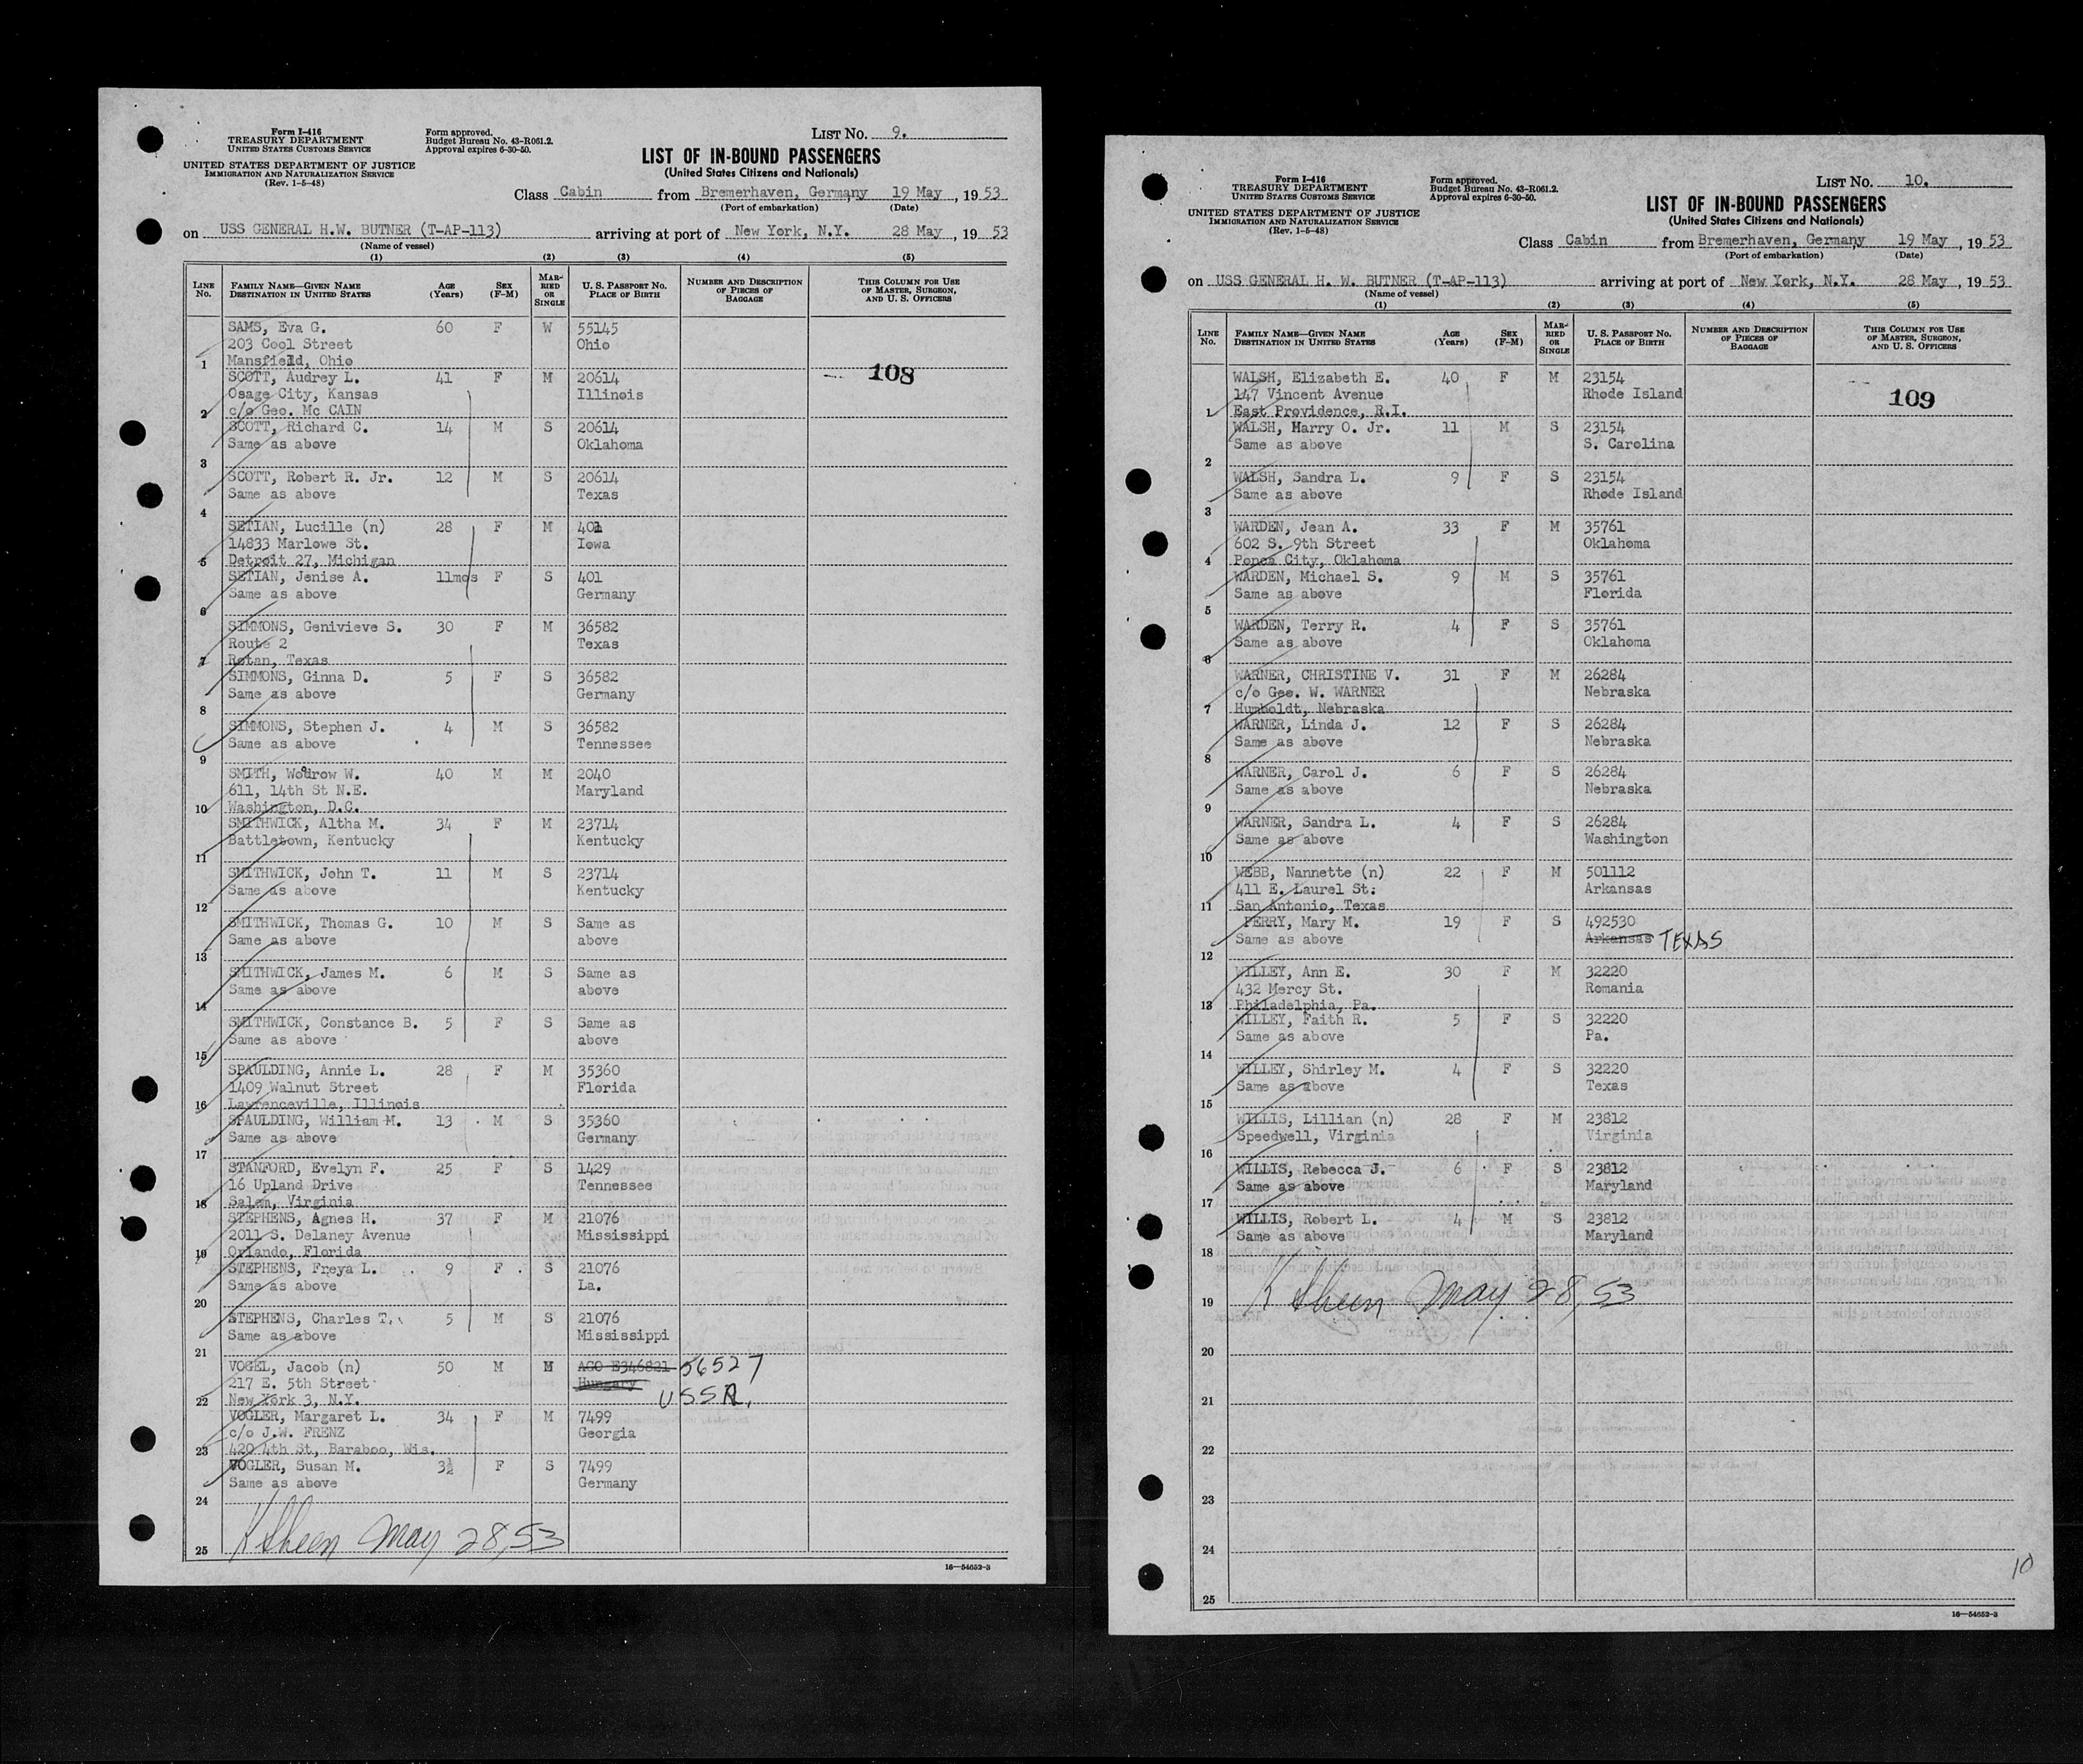 Form I-416
TREASURY DEPARTMENT
UNITED STATES CUSTOMS SERVICE
UNITED STATES DEPARTMENT OF JUSTICE
IMMIGRATION AND NATURALIZATION SERVICE
(Rev. 1-5-48)
Form approved.
Budget Bureau No. 43-R061.2.
Approval expires 6-30-50.
LIST No. 9.
LIST OF IN-BOUND PASSENGERS
(United States Citizens and Nationals)
Class Cabin from Bremerhaven, Germany 19 May, 19 53
(Port of embarkation) (Date)
on USS GENERAL H.W. BUTNER (T-AP-113) arriving at port of New York, N.Y. 28 May, 19 53
(Name of vessel)
(1) (2) (3) (4) (5)
LINE No. FAMILY NAME—GIVEN NAME DESTINATION IN UNITED STATES AGE (Years) SEX (F-M) MARRIED OR SINGLE U. S. PASSPORT NO. PLACE OF BIRTH NUMBER AND DESCRIPTION OF PIECES OF BAGGAGE THIS COLUMN FOR USE OF MASTER, SURGEON, AND U. S. OFFICERS
SAMS, Eva G. 60 F W 55145
203 Cool Street Ohio
1 Mansfield, Ohio
108
SCOTT, Audrey L. 41 F M 20614
Osage City, Kansas Illinois
2 c/o Geo. Mc CAIN
SCOTT, Richard C. 14 M S 20614
Same as above Oklahoma
3
SCOTT, Robert R. Jr. 12 M S 20614
Same as above Texas
4
SETIAN, Lucille (n) 28 F M 401
14833 Marlowe St. Iowa
5 Detroit 27, Michigan
SETIAN, Jenise A. 11mos F S 401
Same as above Germany
6
SIMMONS, Genivieve S. 30 F M 36582
Route 2 Texas
7 Rotan, Texas
SIMMONS, Ginna D. 5 F S 36582
Same as above Germany
8
SIMMONS, Stephen J. 4 M S 36582
Same as above Tennessee
9
SMITH, Woodrow W. 40 M M 2040
611, 14th St N.E. Maryland
10 Washington, D.C.
SMITHWICK, Altha M. 34 F M 23714
Battletown, Kentucky Kentucky
11
SMITHWICK, John T. 11 M S 23714
Same as above Kentucky
12
SMITHWICK, Thomas G. 10 M S Same as
Same as above above
13
SMITHWICK, James M. 6 M S Same as
Same as above above
14
SMITHWICK, Constance B. 5 F S Same as
Same as above above
15
SPAULDING, Annie L. 28 F M 35360
1409 Walnut Street Florida
16 Lawrenceville, Illinois
SPAULDING, William M. 13 M S 35360
Same as above Germany
17
STANFORD, Evelyn F. 25 F S 1429
16 Upland Drive Tennessee
18 Salem, Virginia
STEPHENS, Agnes H. 37 F M 21076
2011 S. Delaney Avenue Mississippi
19 Orlando, Florida
STEPHENS, Freya L. 9 F S 21076
Same as above La.
20
STEPHENS, Charles T. 5 M S 21076
Same as above Mississippi
21
VOGEL, Jacob (n) 50 M M AGO E346821 56527
217 E. 5th Street Hungary USSR.
22 New York 3, N.Y.
VOGLER, Margaret L. 34 F M 7499
c/o J.W. FRENZ Georgia
23 420 4th St, Baraboo, Wis.
VOGLER, Susan M. 3½ F S 7499
Same as above Germany
24
25 K Sheen May 28, 53
16—54652-3
Form I-416
TREASURY DEPARTMENT
UNITED STATES CUSTOMS SERVICE
UNITED STATES DEPARTMENT OF JUSTICE
IMMIGRATION AND NATURALIZATION SERVICE
(Rev. 1-5-48)
Form approved.
Budget Bureau No. 43-R061.2.
Approval expires 6-30-50.
LIST No. 10.
LIST OF IN-BOUND PASSENGERS
(United States Citizens and Nationals)
Class Cabin from Bremerhaven, Germany 19 May, 19 53
(Port of embarkation) (Date)
on USS GENERAL H. W. BUTNER (T-AP-113) arriving at port of New York, N.Y. 28 May, 19 53
(Name of vessel)
(1) (2) (3) (4) (5)
LINE No. FAMILY NAME—GIVEN NAME DESTINATION IN UNITED STATES AGE (Years) SEX (F-M) MARRIED OR SINGLE U. S. PASSPORT NO. PLACE OF BIRTH NUMBER AND DESCRIPTION OF PIECES OF BAGGAGE THIS COLUMN FOR USE OF MASTER, SURGEON, AND U. S. OFFICERS
WALSH, Elizabeth E. 40 F M 23154
147 Vincent Avenue Rhode Island 109
1 East Providence, R.I.
WALSH, Harry O. Jr. 11 M S 23154
Same as above S. Carolina
2
WALSH, Sandra L. 9 F S 23154
Same as above Rhode Island
3
WARDEN, Jean A. 33 F M 35761
602 S. 9th Street Oklahoma
4 Ponca City, Oklahoma
WARDEN, Michael S. 9 M S 35761
Same as above Florida
5
WARDEN, Terry R. 4 F S 35761
Same as above Oklahoma
6
WARNER, CHRISTINE V. 31 F M 26284
c/o Geo. W. WARNER Nebraska
7 Humboldt, Nebraska
WARNER, Linda J. 12 F S 26284
Same as above Nebraska
8
WARNER, Carol J. 6 F S 26284
Same as above Nebraska
9
WARNER, Sandra L. 4 F S 26284
Same as above Washington
10
WEBB, Nannette (n) 22 F M 501112
411 E. Laurel St: Arkansas
11 San Antonio, Texas
PERRY, Mary M. 19 F S 492530
Same as above Arkansas TEXAS
12
WILLEY, Ann E. 30 F M 32220
432 Mercy St. Romania
13 Philadelphia, Pa.
WILLEY, Faith R. 5 F S 32220
Same as above Pa.
14
WILLEY, Shirley M. 4 F S 32220
Same as above Texas
15
WILLIS, Lillian (n) 28 F M 23812
Speedwell, Virginia Virginia
16
WILLIS, Rebecca J. 6 F S 23812
Same as above Maryland
17
WILLIS, Robert L. 4 M S 23812
Same as above Maryland
18
19 K Sheen May 28, 53
20
21
22
23
24
10
25
16—54652-3